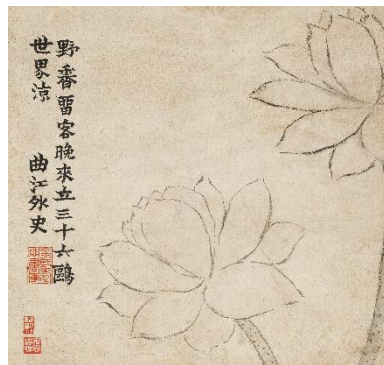 野香留客晚來立三十六鷗
世界涼
曲江外史